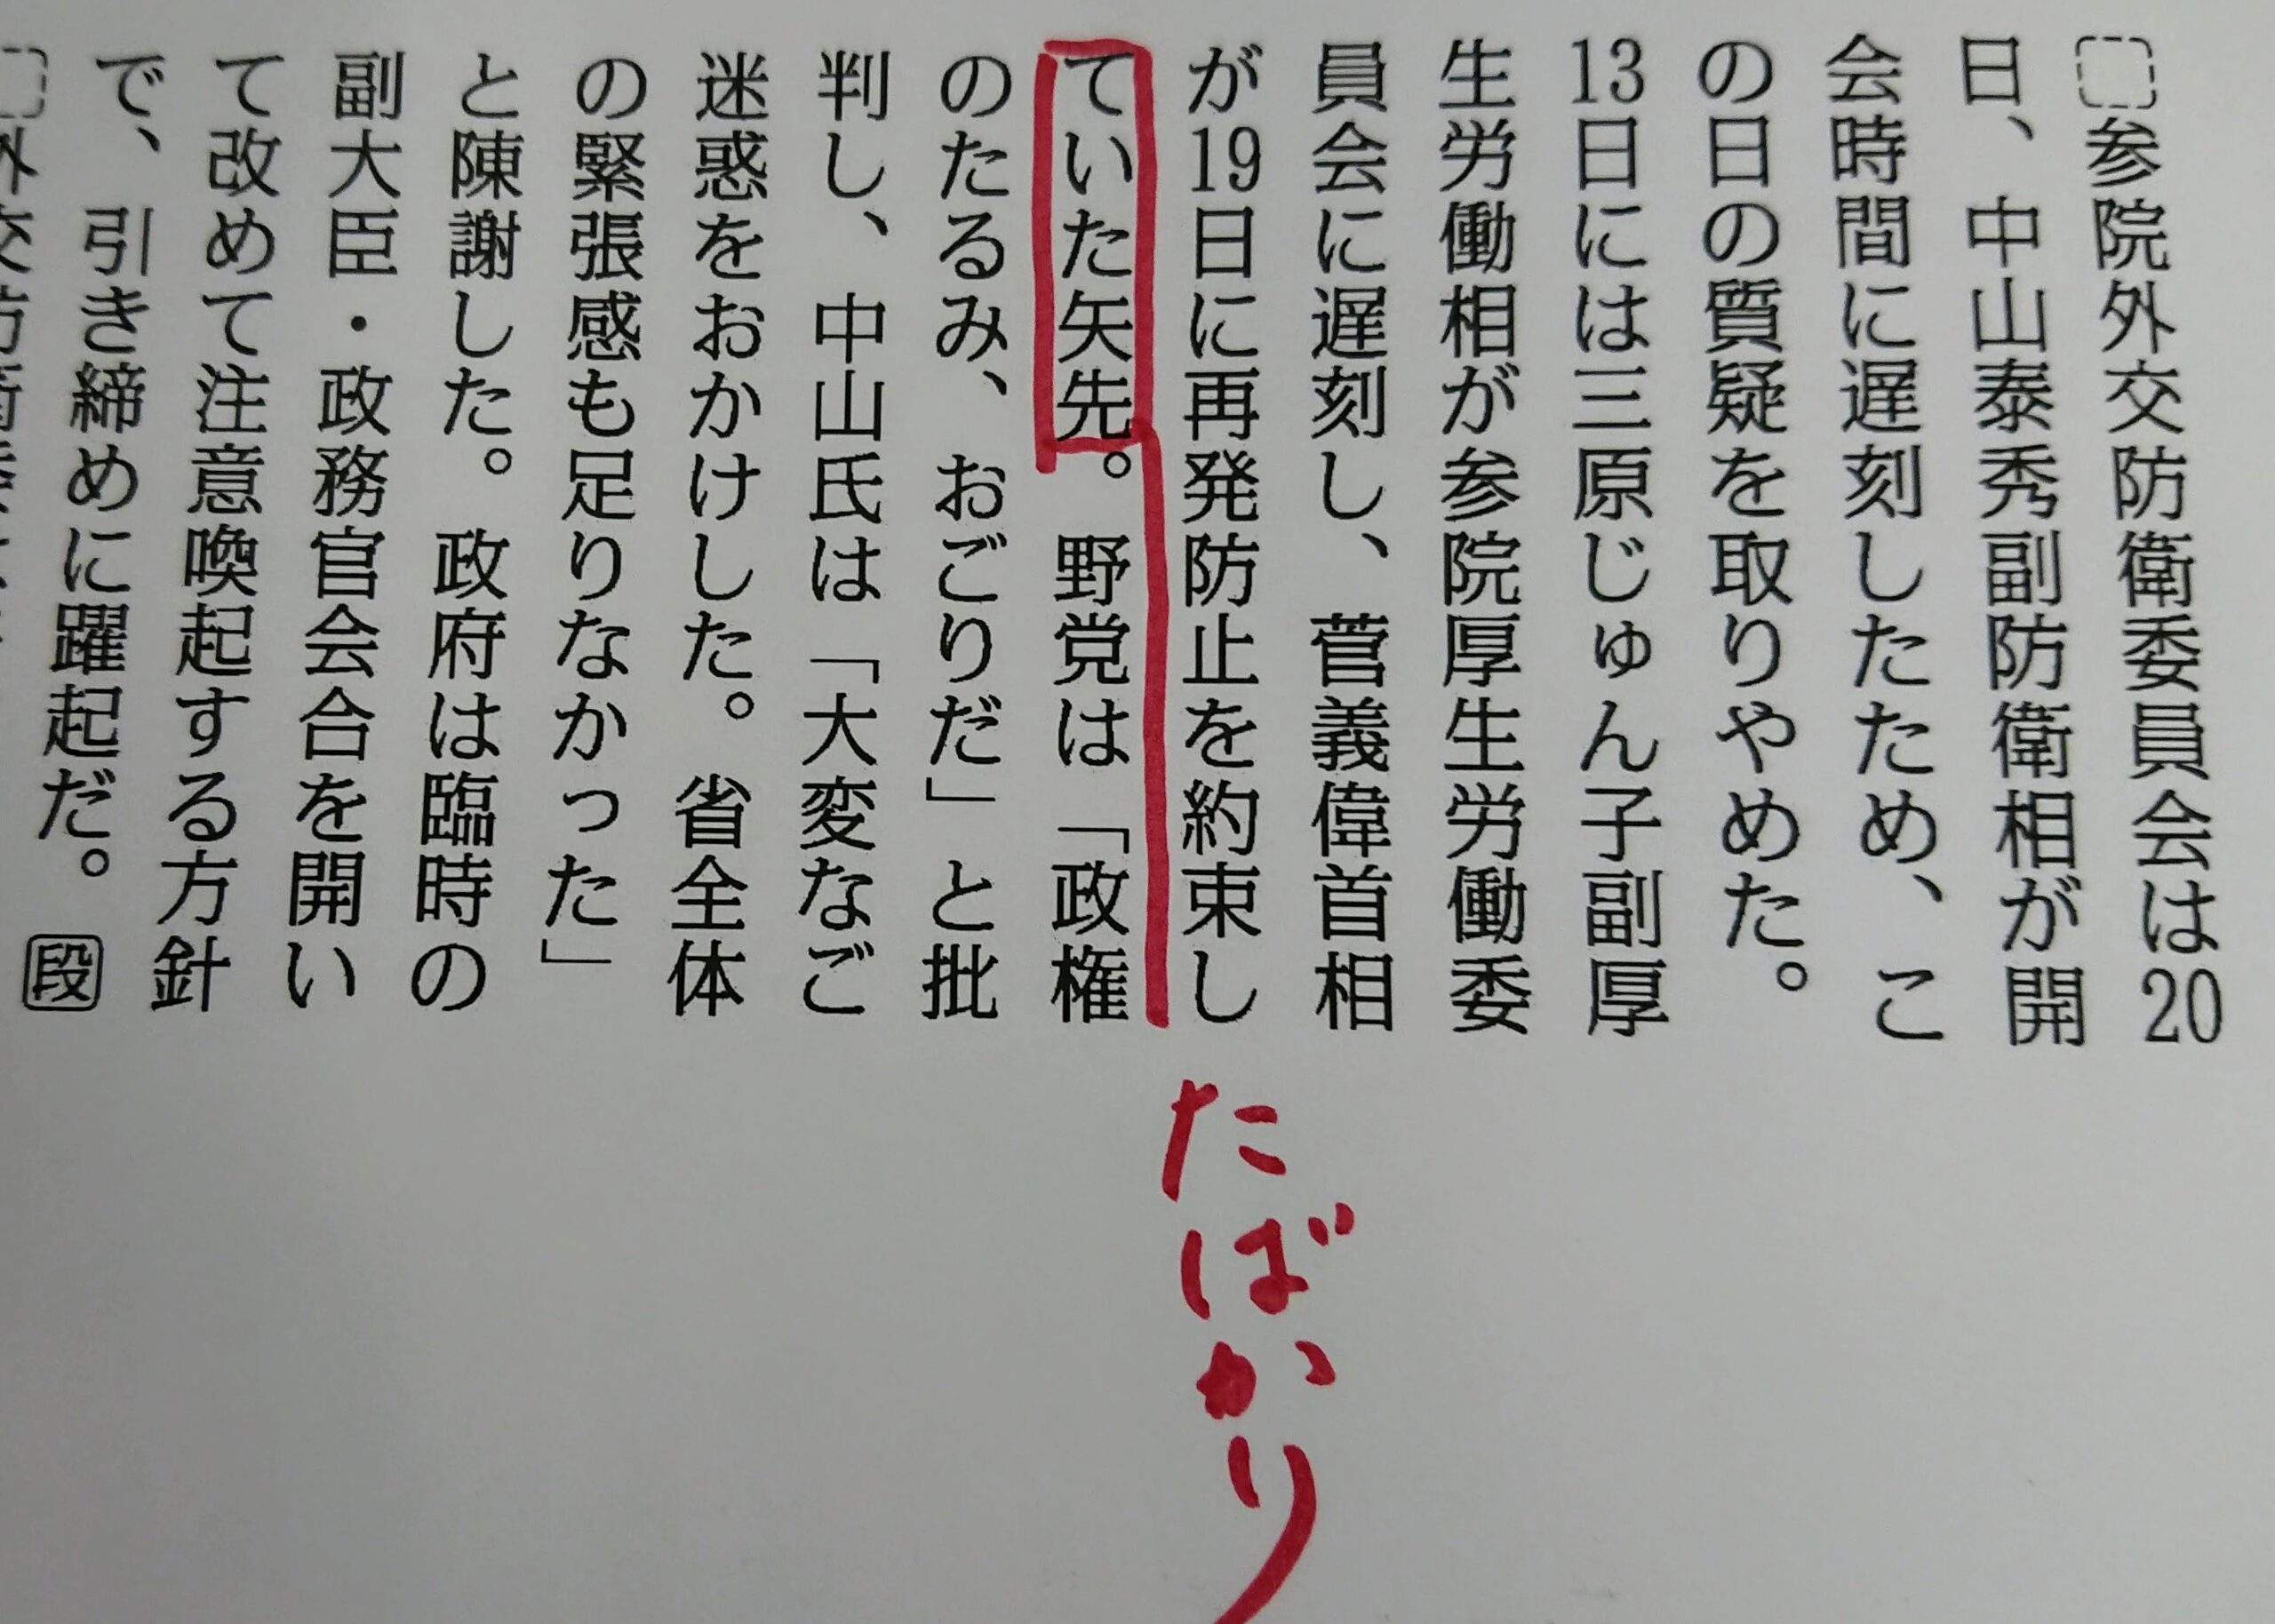 参院外交防衛委員会は20
日、中山泰秀副防衛相が開
会時間に遅刻したため、こ
の日の質疑を取りやめた。
13日には三原じゅん子副厚
生労働相が参院厚生労働委
員会に遅刻し、菅義偉首相
が19日に再発防止を約束し
ていた矢先。野党は「政権
のたるみ、おごりだ」と批
判し、中山氏は「大変なご
迷惑をおかけした。省全体
の緊張感も足りなかった」
と陳謝した。政府は臨時の
副大臣・政務官会合を開い
て改めて注意喚起する方針
で、引き締めに躍起だ。段
たばかり